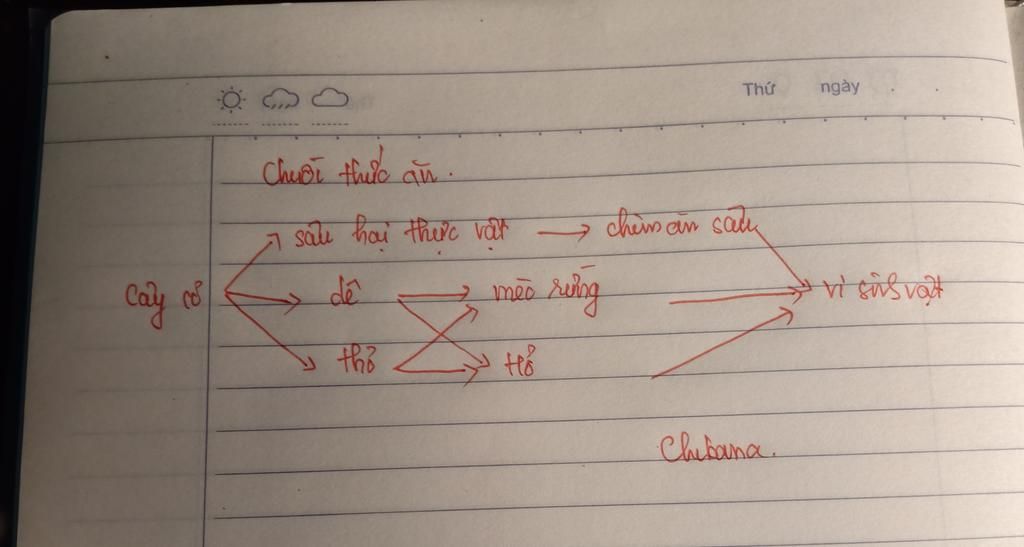 Thứ ngày
Chuỗi thức ăn.
sâu hại thực vật → chim ăn sâu
Cây cỏ dê mèo rừng vi sinh vật
thỏ hổ
Chibana.